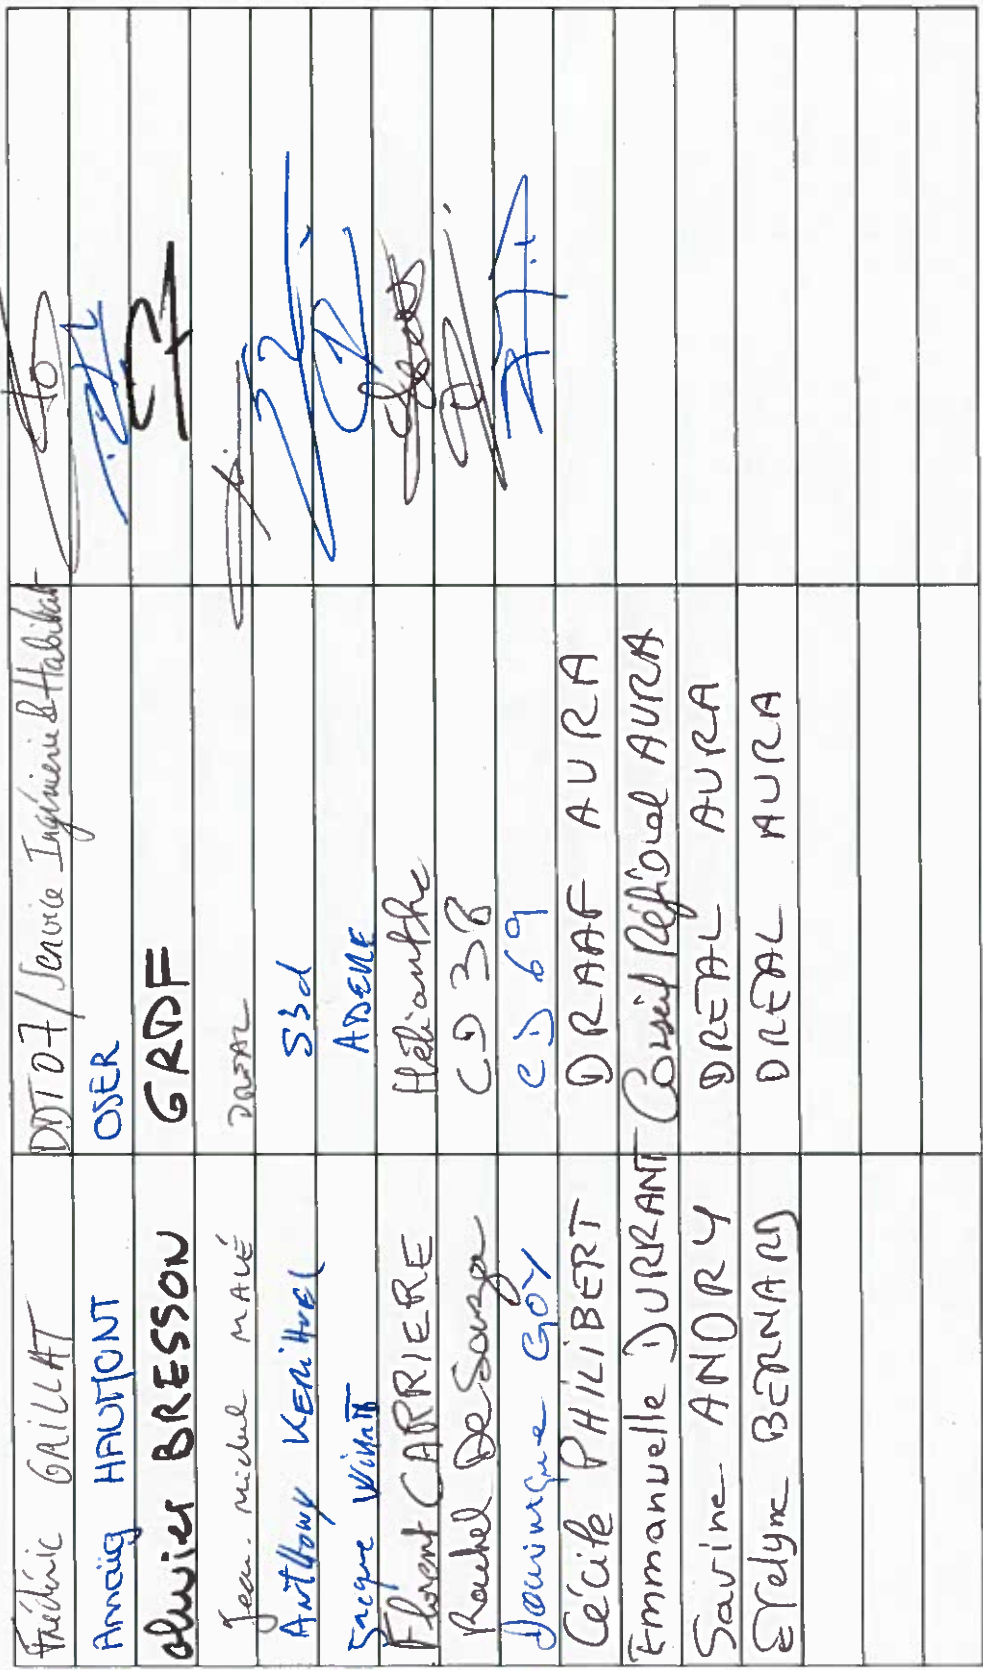 Frédéric GAILLAT DDT07/Service Ingénierie & Habitat
Anaïg HAUMONT OSER
Olivier BRESSON GRDF
Jean-Michel MALÉ DREAL
Anthony KERIHUEL S3d
ADEME
Florent CARRIERE Hélianthe
Rachel De Souza CD 38
Dominique GOY CD 69
Cécile PHILIBERT DRAAF AURA
Emmanuelle DURRANT Conseil Régional AURA
Savine ANDRY DREAL AURA
Evelyne BERNARD DREAL AURA